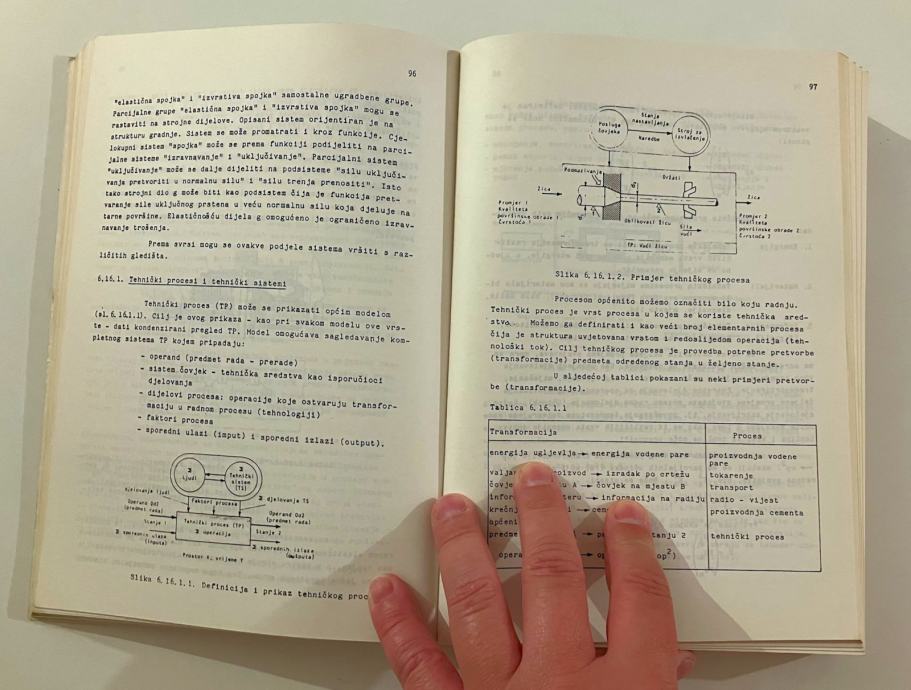 96
"elastična spojka" i "izvrstiva spojka" samostalne ugradbene grupe.
Parcijalne grupe "elastična spojka" i "izvrstiva spojka" mogu se
rastaviti na strojne dijelove. Opisani sistem orijentiran je na
strukturu gradnje. Sistem se može promatrati i kroz funkcije. Cje-
lokupni sistem "spojka" može se prema funkciji podijeliti na parci-
jalne sisteme "izravnavanje" i "uključivanje". Parcijalni sistem
"uključivanje" može se dalje dijeliti na podsisteme "silu uključi-
vanja pretvoriti u normalnu silu" i "silu trenja prenositi". Isto
tako strojni dio g može biti kao podsistem čija je funkcija pret-
varanje sile uključnog prstena u veću normalnu silu koja djeluje na
tarne površine. Elastičnošću dijela g omogućeno je ograničeno izrav-
navanje trošenja.
Prema svrsi mogu se ovakve podjele sistema vršiti s raz-
ličitih gledišta.
6.16.1. Tehnički procesi i tehnički sistemi
Tehnički proces (TP) može se prikazati općim modelom
(sl.6.16.1.1). Cilj je ovog prikaza - kao pri svakom modelu ove vrs-
te - dati kondenzirani pregled TP. Model omogućava sagledavanje kom-
pletnog sistema TP kojem pripadaju:
- operand (predmet rada - prerade)
- sistem čovjek - tehnička sredstva kao isporučioci
djelovanja
- dijelovi procesa: operacije koje ostvaruju transfor-
maciju u radnom procesu (tehnologiji)
- faktori procesa
- sporedni ulazi (imput) i sporedni izlazi (output).
Σ ljudi
Σ Tehnički sistem (TS)
Djelovanje ljudi
faktori procesa
Σ djelovanja TS
Operand Od1
(predmet rada)
Stanje 1
Tehnički proces (TP)
Σ operacija
Operand Od2
(predmet rada)
Stanje 2
Σ sporednih ulaza
(inputa)
Σ sporednih izlaza
(outputa)
Prostor R, vrijeme T
Slika 6.16.1.1. Definicija i prikaz tehničkog
97
Posluga
čovjeka
Stanje
nastavljanja
Naredbe
Stroj za
izvlačenje
Podmazivanje
Držati
Žica
Promjer 1
Kvaliteta
površinske obrade 1
Čvrstoća 1
Oblikovati žicu
Sila
vući
Žica
Promjer 2
Kvaliteta
površinske obrade 2
Čvrstoća 2
TP: Vući žicu
Slika 6.16.1.2. Primjer tehničkog procesa
Procesom općenito možemo označiti bilo koju radnju.
Tehnički proces je vrst procesa u kojem se koriste tehnička sred-
stva. Možemo ga definirati i kao veći broj elementarnih procesa
čija je struktura uvjetovana vrstom i redoslijedom operacija (teh-
nološki tok). Cilj tehničkog procesa je provedba potrebne pretvorbe
(transformacije) predmeta određenog stanja u željeno stanje.
U sljedećoj tablici pokazani su neki primjeri pretvor-
be (transformacije).
Tablica 6.16.1.1
Transformacija Proces
energija ugljevlja → energija vodene pare proizvodnja vodene
pare
izradak po crtežu tokarenje
A → čovjek na mjestu B transport
→ informacija na radiju radio - vijest
proizvodnja cementa
stanju 2 tehnički proces